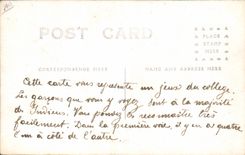 POST CARD
PLACE
STAMP
HERE
CORRESPONDENCE HERE
NAME AND ADDRESS HERE
Cette carte vous represente un jeux du collège.
Les garçons que vous y voyez sont à la majorité
des Indiens. Vous pouvez les reconnaitre très
facilement. Dans la première voie, il y en a quatre
l'un à côté de l'autre.